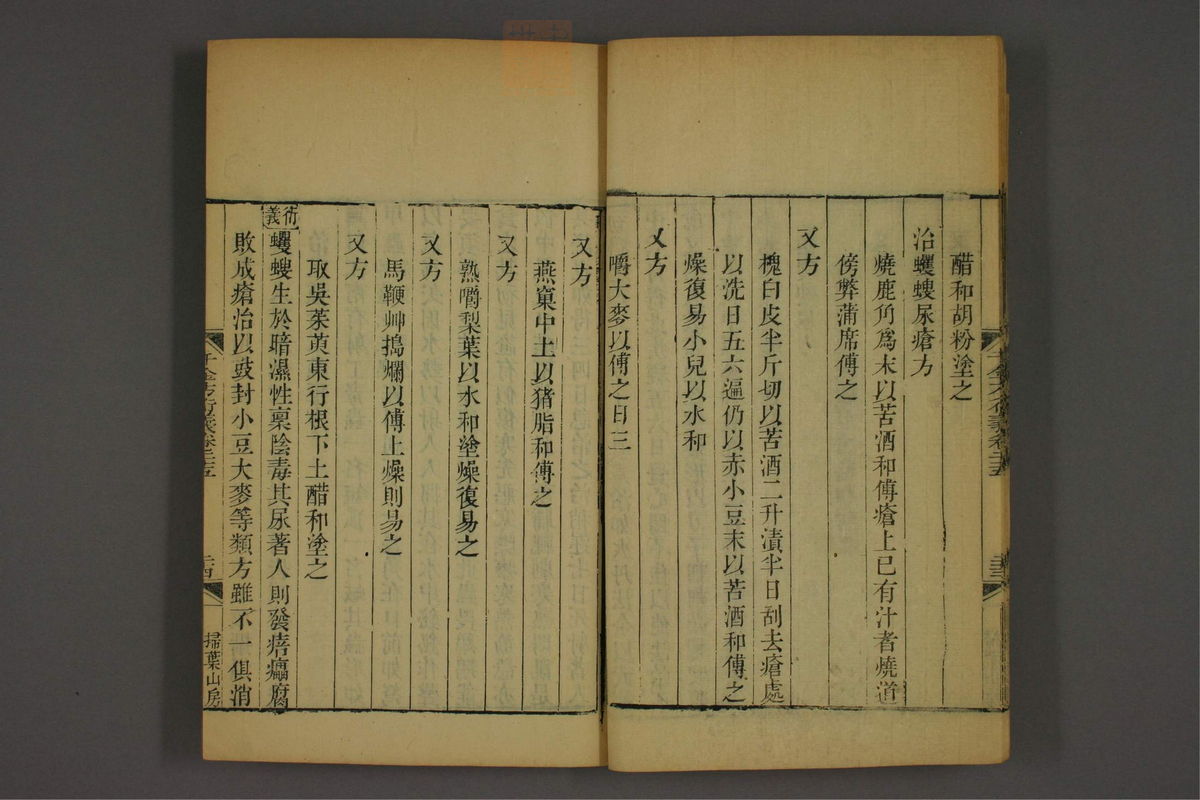 醋和胡粉塗之
治蠼螋尿瘡方
燒鹿角爲末以苦酒和傅瘡上已有汁者燒道
傍弊蒲席傅之
又方
槐白皮半斤切以苦酒二升漬半日刮去瘡處
以洗日五六遍仍以赤小豆末以苦酒和傅之
燥復易小兒以水和
又方
嚼大麥以傅之日三
又方
燕窠中土以猪脂和傅之
又方
熟嚼梨葉以水和塗燥復易之
又方
馬鞭艸搗爛以傅上燥則易之
又方
取吳茱萸東行根下土醋和塗之
衍義
蠼螋生於暗濕性稟陰毒其尿著人則發痦㿔腐
敗成瘡治以豉封小豆大麥等類方雖不一俱消
千金方衍義卷二十五
二四
掃葉山房